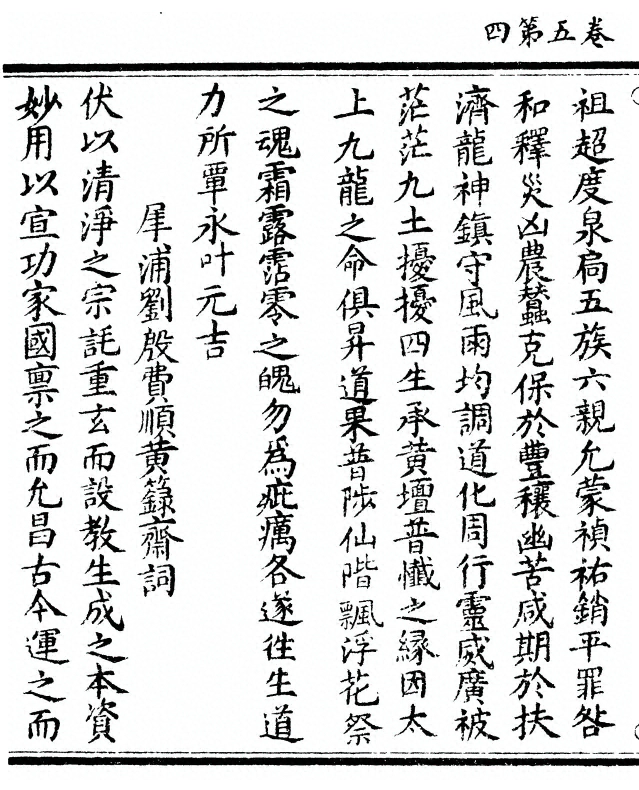 卷五第四
祖超度泉扃五族六親允蒙禎祐銷平罪咎
和釋災凶農蠶克保於豐穰幽苦咸期於扶
濟龍神鎮守風雨均調道化周行靈威廣被
茫茫九土擾擾四生承黃壇普懺之縁因太
上九龍之命俱昇道果普陟仙階飄浮花祭
之魂霜露霑零之魄勿為疵癘各遂徃生道
力所覃永叶元吉
犀浦劉殷費順黃籙齋詞
伏以清淨之宗託重玄而設教生成之本資
妙用以宣功家國禀之而允昌古今運之而